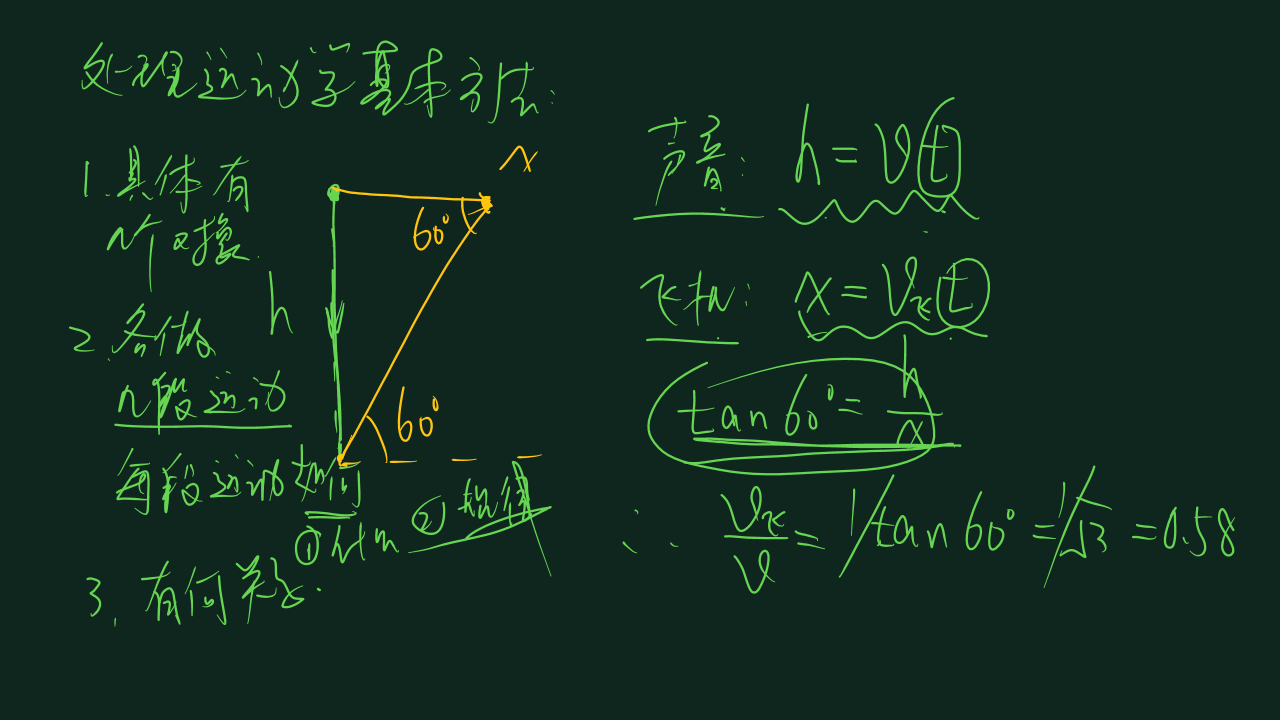 处理运动学基本方法:
1.具体有
n个对象.
2.各做
n段运动
每段运动如何
①时间 ②规律
3.有何关系.
x
60°
h
60°
声音: h=vt
飞机: x=v飞t
tan60°=h/x
∴ v飞/v=1/tan60°=1/√3=0.58